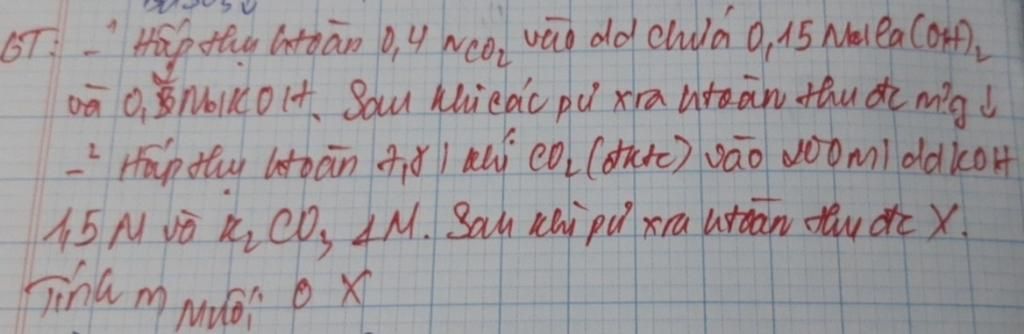 BT: -¹ Hấp thụ htoàn 0,4 N CO₂ vào dd chứa 0,15 Mol Ca(OH)₂
và 0, Mol KOH. Sau khi các pứ xra htoàn thu đc m?g ↓
-² Hấp thụ htoàn 7,8 l khí CO₂ (đktc) vào 200ml dd KOH
1,5 M và K₂CO₃ 1M. Sau khi pứ xra htoàn thu đc X.
Tính m muối ở X